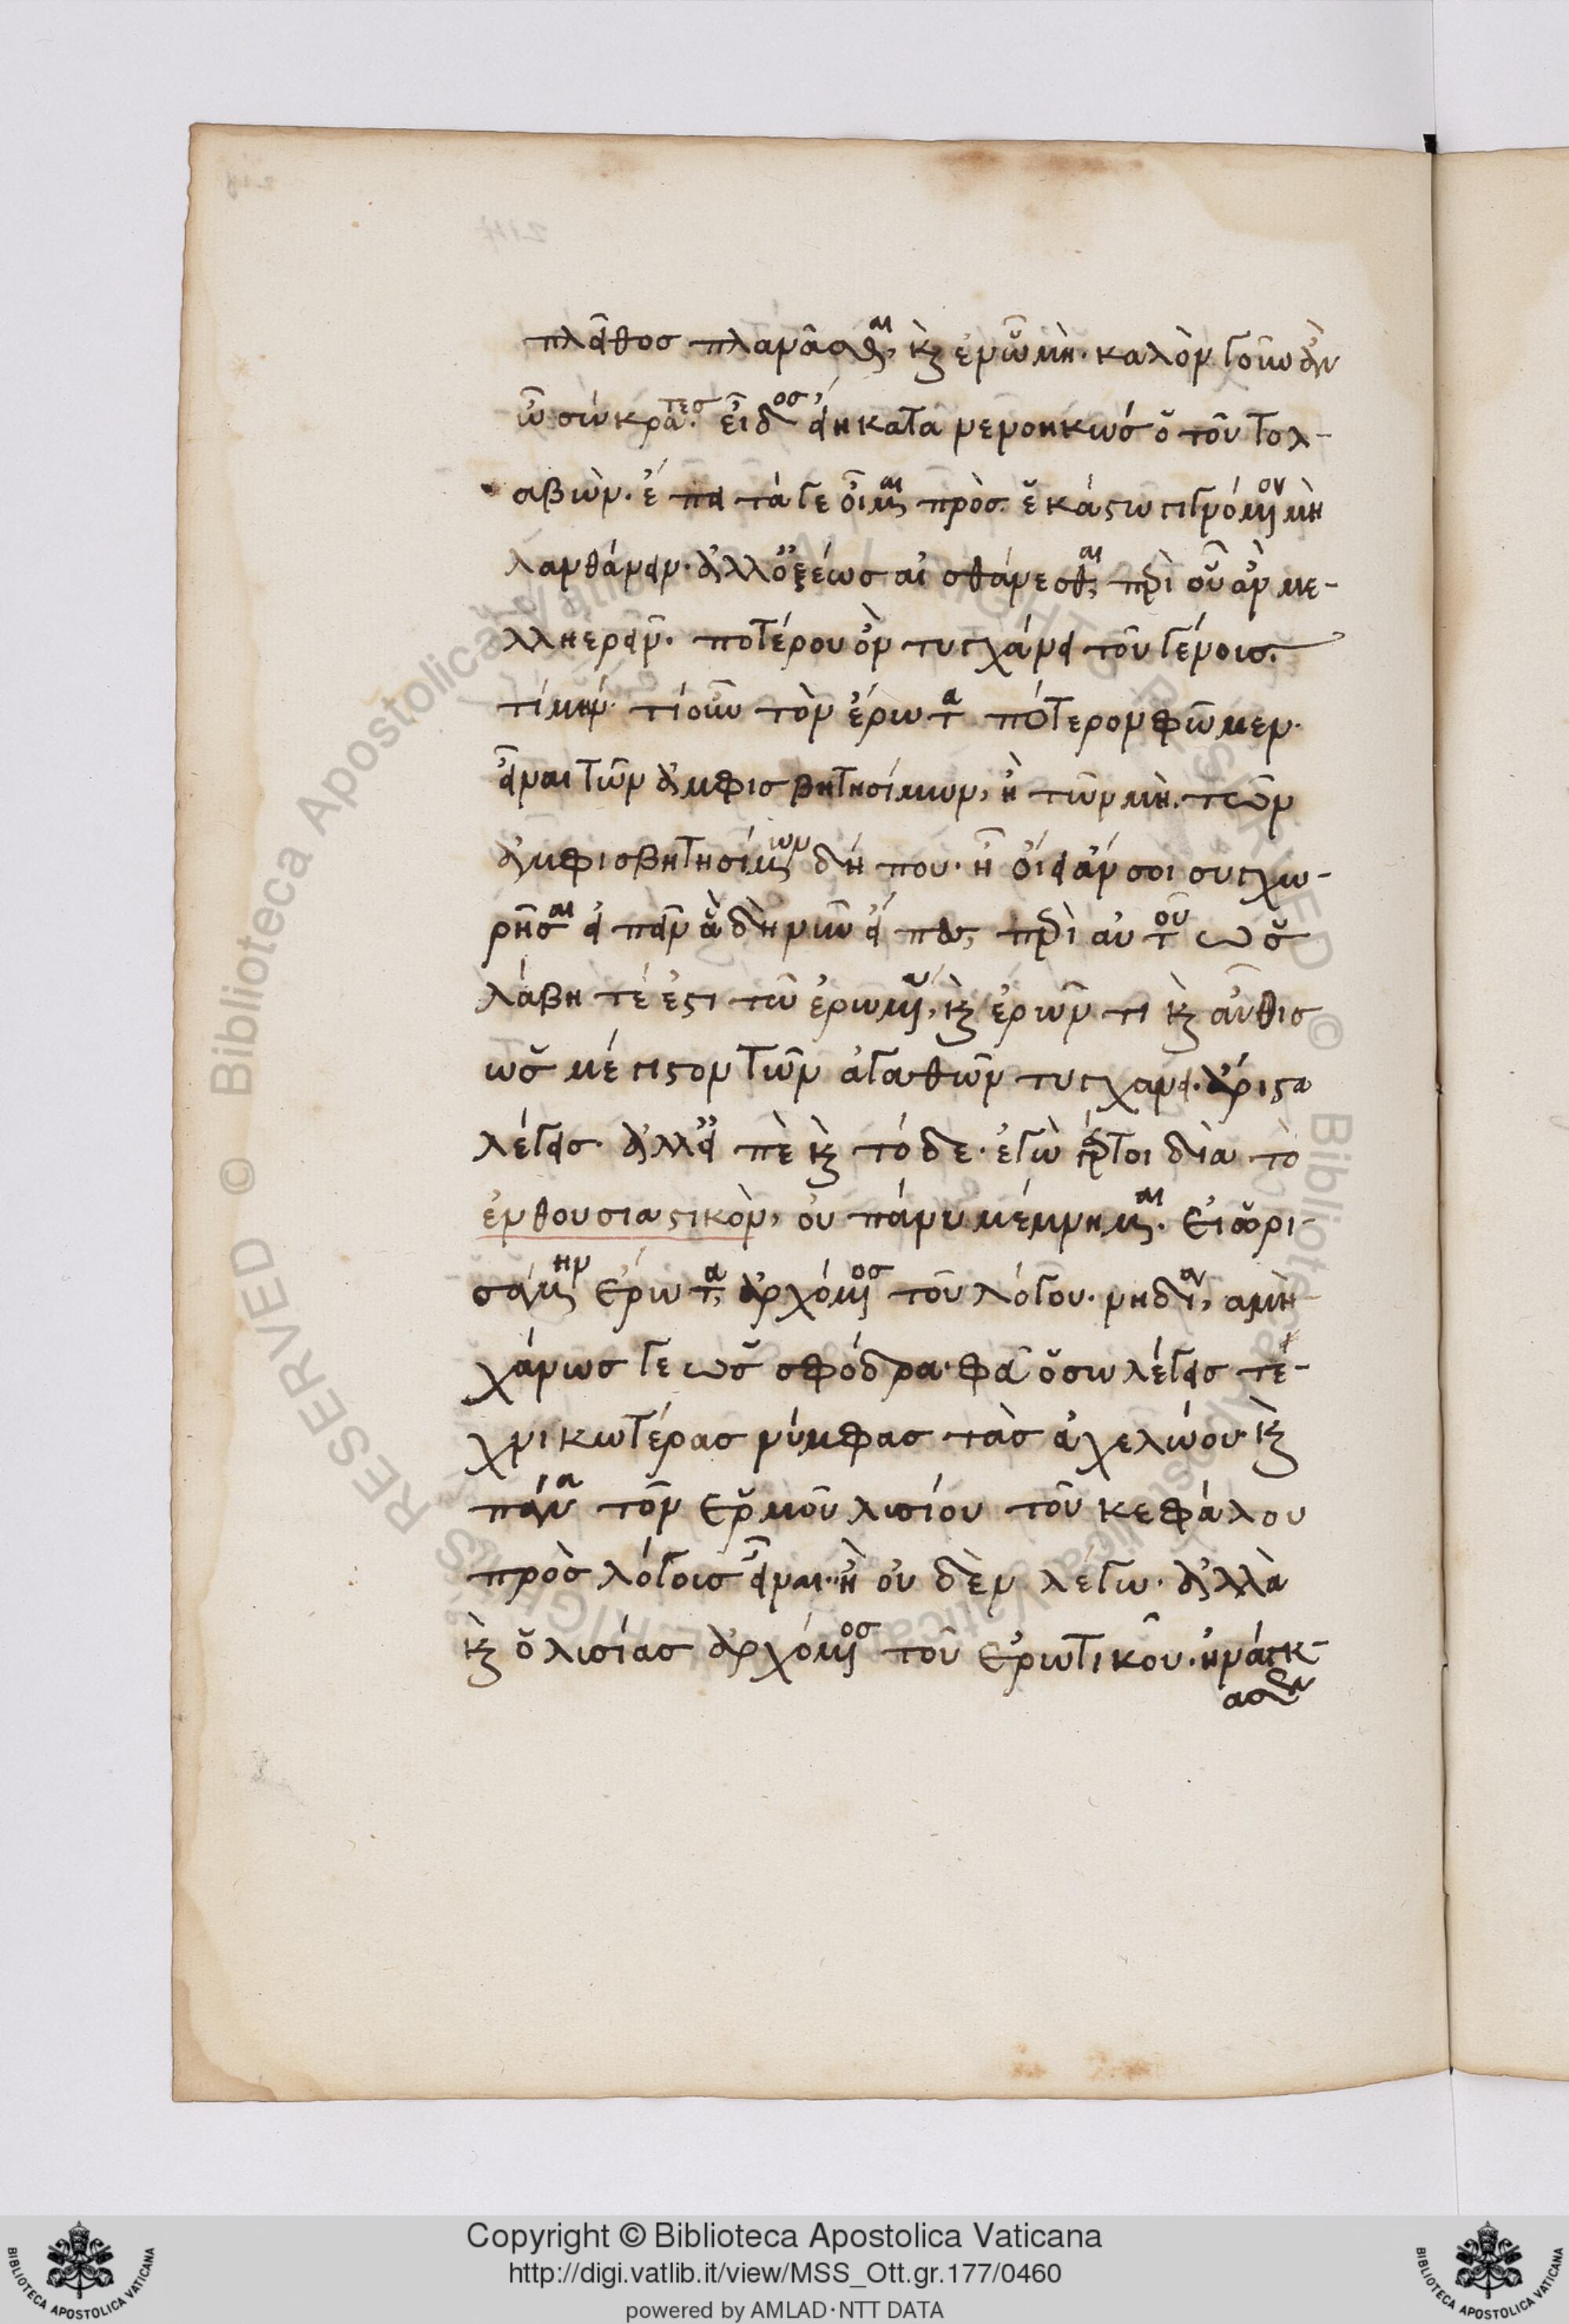 πλεῖθος πλανᾶσθαι, καὶ ἐν ᾧ μὴ. καλὸν γοῦν ἂν
ὦ σώκρατες. εἶδος εἴη κατα νενοηκὼς ὁ τοῦ τολ-
αβὼν. ἔ πει τά γε οἶμαι πρὸς ἑκάστω γιγνόμενον μὴ
λανθάνειν. ἀλλ' ὀξέως αἰ σθάνεσθαι, περὶ οὗ ἂν με-
λλη ερεῖν. ποτέρου ὂν τυγχάνει τοῦ γένοις.
τί μήν. τί οὖν τὸν ἔρωτα πότερον φῶμεν.
εἶναι τῶν ἀμφισβητησίμων, ἢ τῶν μὴ. τῶν
ἀμφισβητησίμων δή που. ἢ οἴει ἄν σοι συγχω-
ρῆσαι εἰ πεῖν ἃ δὴ νῦν εἴ πες, περὶ αὐτοῦ ὡς
λάβη τέ ἐστι τῶ ἐρωμένω, καὶ ἐρῶν τι καὶ αὖθις
ὡς μέγιστον τῶν ἀγαθῶν τυγχανει. ἄριστα
λέγεις. ἀλλ' εἰ πὲ καὶ τόδε. ἐγὼ γάρ τοι διὰ τὸ
ἐνθουσιαστικὸν, οὐ πάνυ μέμνημαι. εἰ ὡρι-
σάμην ἔρωτα, ἀρχόμενος τοῦ λόγου. νηδία, αμὴ-
χάνως γε ὡς σφόδρα. φεῦ ὅσω λέγεις τέ-
χνικωτέρας νύμφας τὰς ἀχελώου. καὶ
πάνα τὸν ἑρμοῦ λισίου τοῦ κεφάλου
πρὸς λόγοις εἶναι. ἢ οὐ δὲν λέγω. ἀλλὰ
καὶ ὁ λισίας ἀρχόμενος τοῦ ἐρωτικοῦ. ἠνάγκ-
ασεν